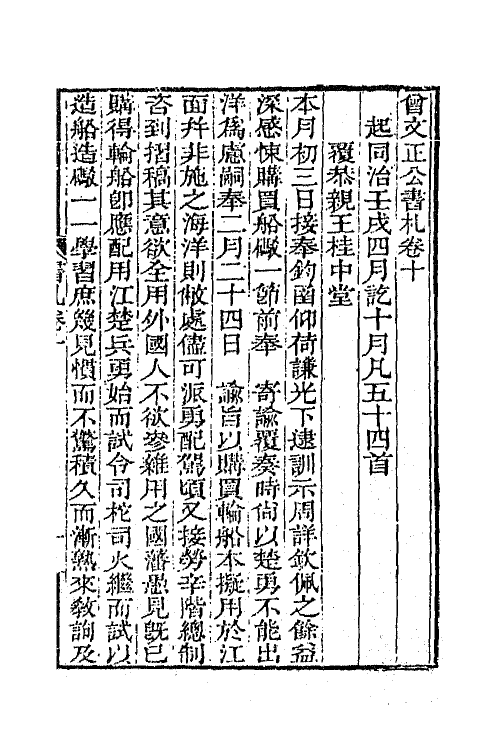 曾文正公書札卷十
起同治壬戌四月訖十月凡五十四首
覆恭親王桂中堂
本月初三日接奉鈞函仰荷謙光下逮訓示周詳欽佩之餘益
深感悚購買船礮一節前奉　寄諭覆奏時尙以楚勇不能出
洋爲慮嗣奉二月二十四日　諭旨以購買輪船本擬用於江
面幷非施之海洋則敝處儘可派勇配駕頃又接勞辛階總制
咨到摺稿其意欲全用外國人不欲參雜用之國藩愚見旣已
購得輪船卽應配用江楚兵勇始而試令司柁司火繼而試以
造船造礮一一學習庶幾見慣而不驚積久而漸熟來敎詢及
書札卷十
一